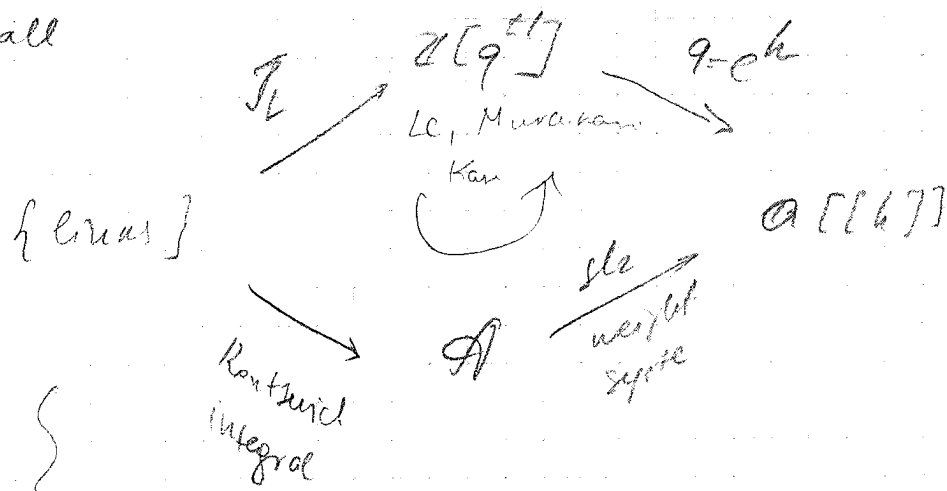 all
J_L
Z[q^{±1}]
q=e^h
Le, Murakami
Kas
{links}
Q[[h]]
sl2
weight
syste
A
Kontsevich
integral